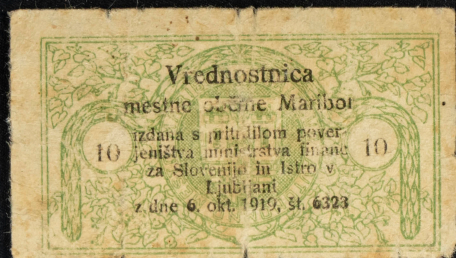 Vrednostnica
mestne občine Maribor
izdana s pritrdilom pover-
10 jeništva ministrstva financ 10
za Slovenijo in Istro v
Ljubljani
z dne 6. okt. 1919, št. 6323